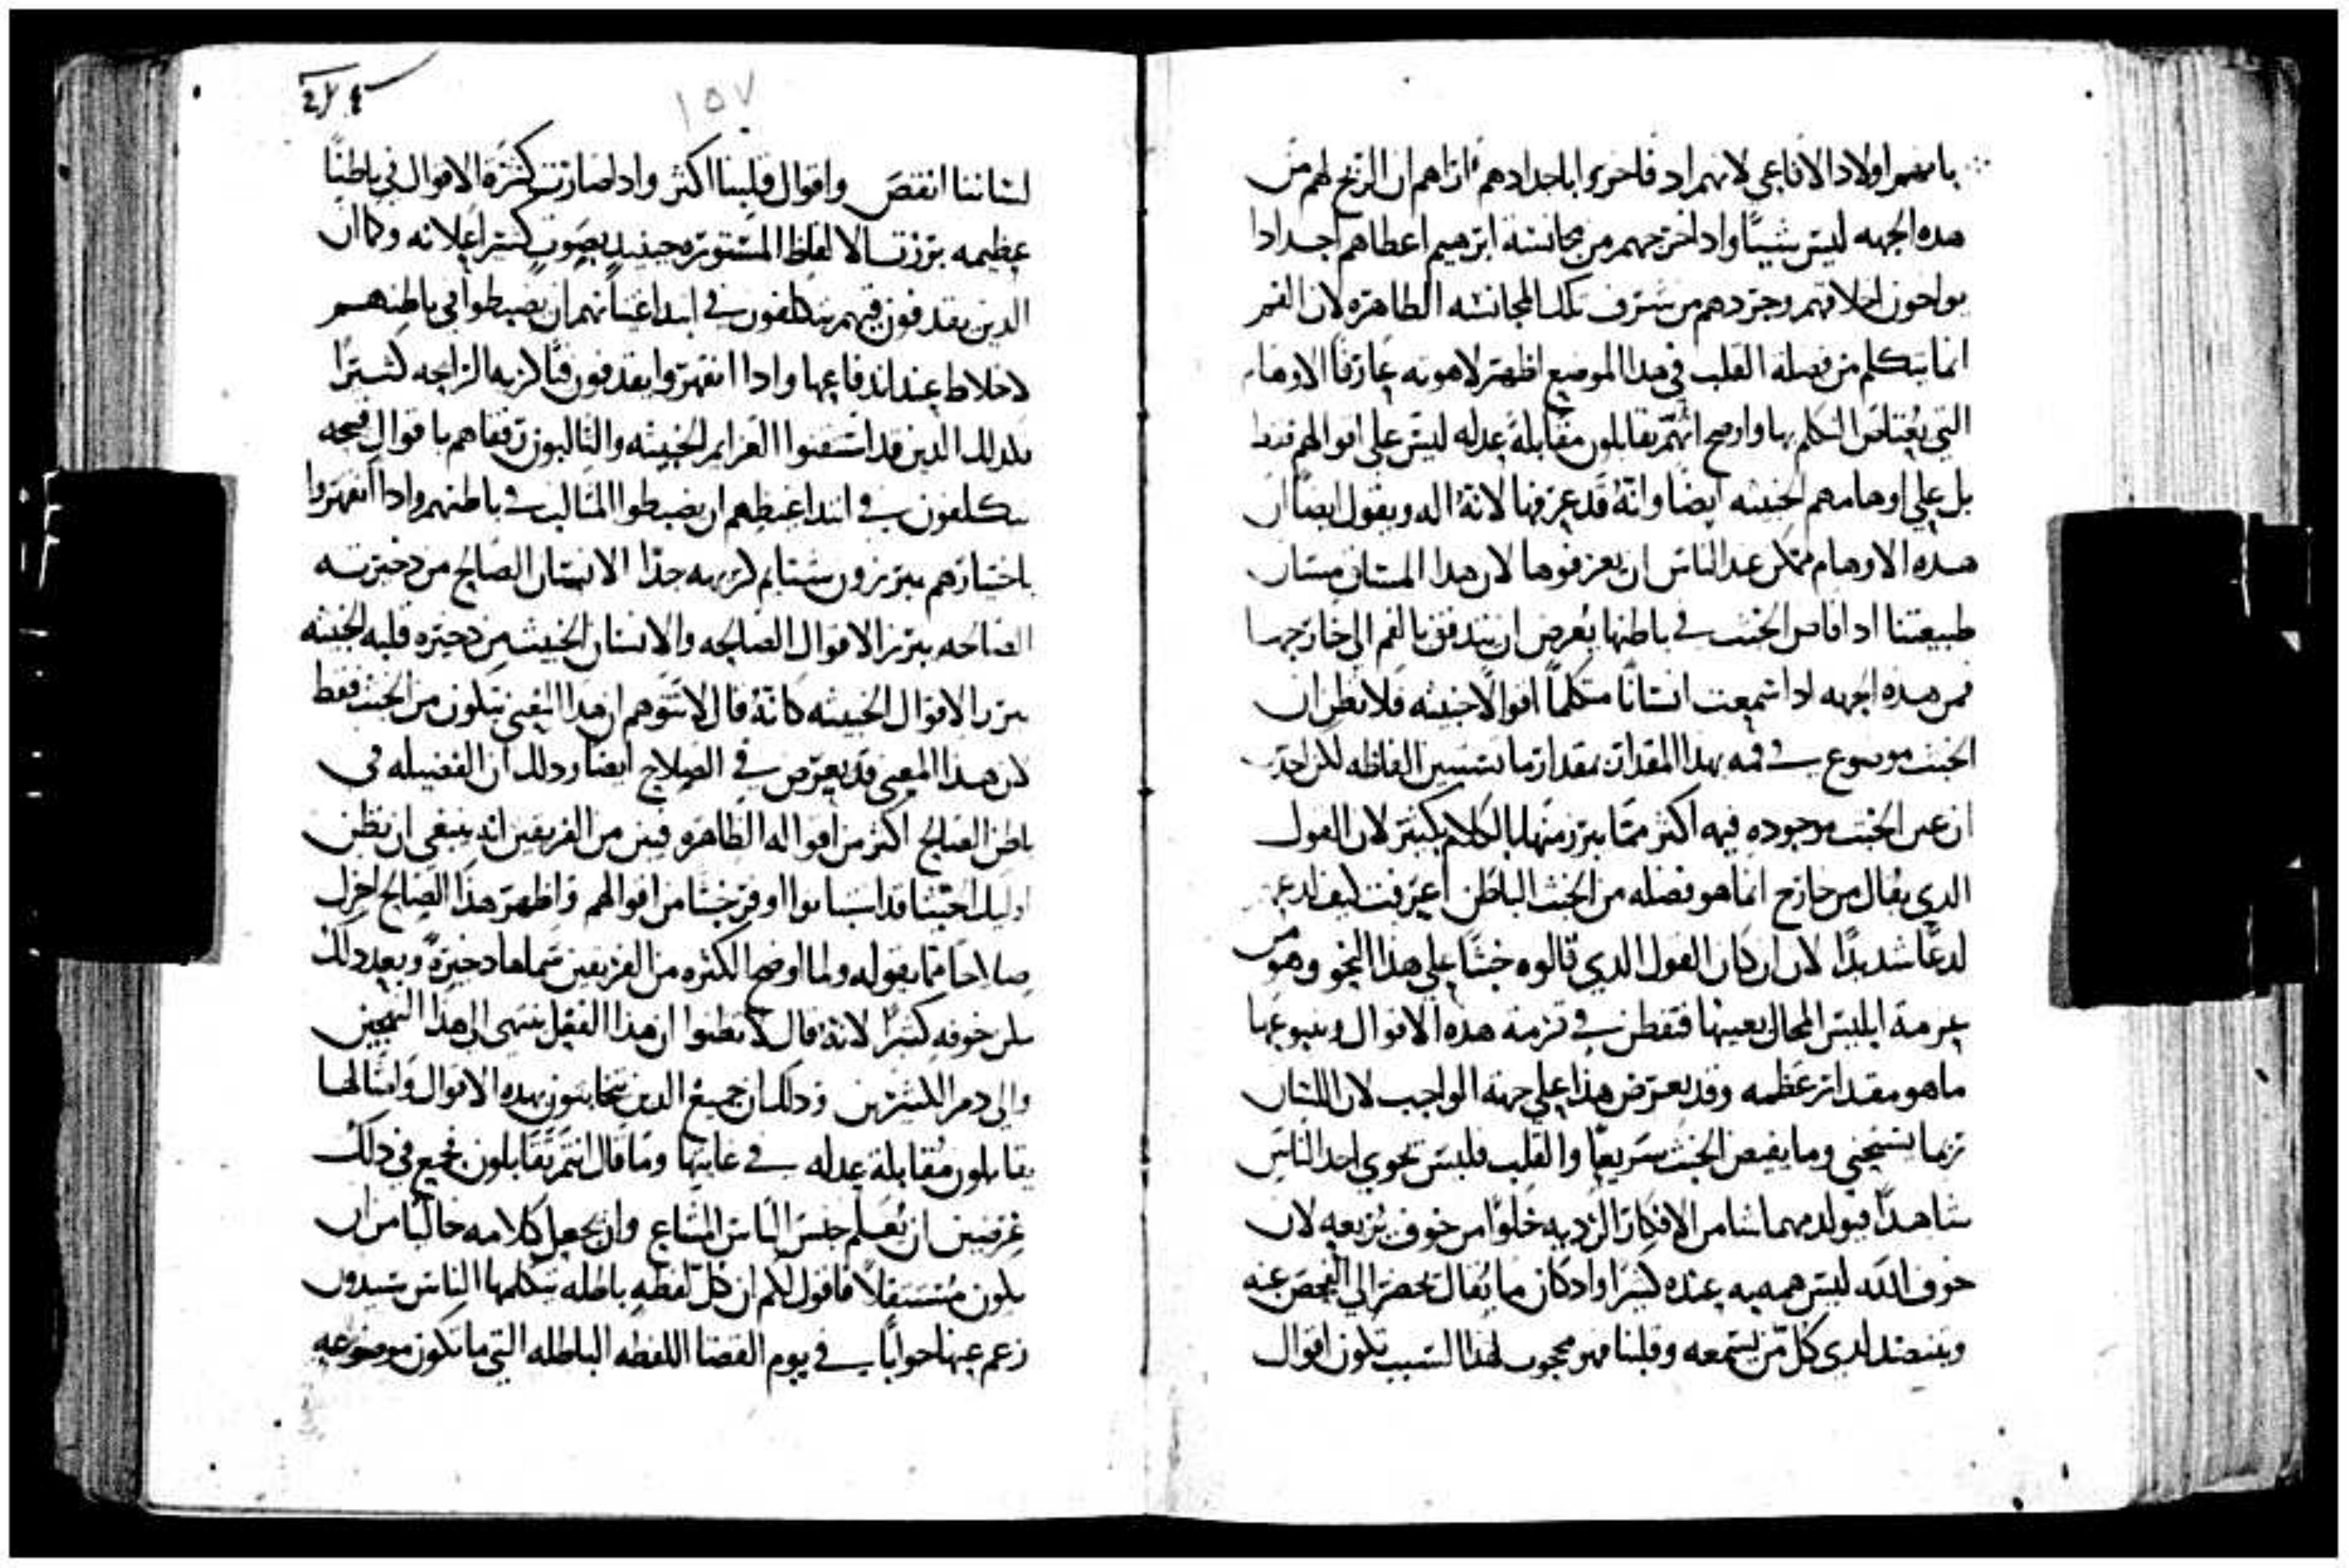 اولاد الافاعي لانهم اد فاخروا باجدادهم اراهم ان الربح لهم من
هده الجهه ليس شيًا واد اخرجهم من مجانسة ابرهيم اعطاهم اجدادا
يواخون اخلاقهم وجردهم من شرف تلك المجانسه الطاهره لان الفم
انما يتكلم من فضله القلب في هدا الموضع اظهر لاهوته عارفا الاوهام
التي يُعتاص التكلم بها واوضح انهم يقابلون مقابلةً عدله ليس على اقوالهم فقط
بل على اوهامهم الخبيثه ايضا وانهُ قد عرفها لانهُ اله ويقول ايضا ان
هده الاوهام ممكن عند الناس ان يعرفوها لان هدا
طبيعتنا ادا فاض الخبث في باطنها يُعرض ان يتدفق بالفم الى خارجها
فمن هده الجهه ادا سمعت انسانًا متكلماً اقوالًا خبيثه فلا تظن ان
الخبث موضوع في فمه بهدا المقدار بمقدار ما الفاظه لكن احدس
ان عين الخبث موجوده فيه اكثر ممّا يبرز منها بالكلام بكثير لان القول
الدي يقال من خارج انما هو فضله من الخبث الباطن اعرفت كيف لدعهم
لدعًا شديدًا لان ان كان القول الدي قالوه خبثًا على هدا النحو وهو من
عزمة ابليس المحال بعينها فتفطن في هده الاقوال وينبوعها
ما هو مقدار عظمه وقد يعرض هدا على جهة الواجب لان اللسان
ربما يستحي وما يفيض الخبث سريعًا والقلب فليس يحوي احد الناس
شاهدًا فيولد مهما شا من الافكار الرديه خلوًا من خوف يزعه لان
خوف الله ليس همه به عنده كثيرا واد كان ما يُقال يحضر الى الفحص عنه
لدى كل من يسمعه وقلبنا فهو محجوب لهدا السبب تكون اقوال
١٥٧
لساننا انقص واقوال قلبنا اكثر وادا صارت كثرة الاقوال في باطننا
عظيمه برزت الالفاظ المستوره حينيد بصوتٍ كثير اعلانه وكما ان
الدين يقدفون قيهم يتكلفون في ابتدا غثيانهم ان يضبطوا في باطنهم
الاخلاط عند اندفاعها وادا انقهروا يقدفون قيًا كريه الرايحه كثيرًا
كدلك الدين قد استقنوا العزايم الخبيثه والثالبون رفقاهم باقوالٍ قبيحه
يتكلفون في ابتدا غيظهم ان يضبطوا المثالب في باطنهم وادا انقهروا
باختيارهم يبرزون شتايم كريهه جدًا الانسان الصالح من دخيرته
الصالحه يبرز الاقوال الصالحه والانسان الخبيث من دخيره قلبه الخبيثه
يبرز الاقوال الخبيثه كانهُ قال لا تتوهم ان هدا المعنى يتكون من الخبث فقط
لان هدا المعنى قد يعرض في الصلاح ايضا ودلك ان الفضيله في
باطن الصالح اكثر من اقواله الظاهره فبين من الفريقين انه ينبغي ان يُظن
اوليك خبثا من اقوالهم واظهر هدا الصالح اجزل
صلاحًا ممّا يقوله ولما اوضح الكثره من الفريقين سماها دخيرةً وبعد دلك
خوفه كثيرًا لانهُ قال لا تظنوا ان هدا الفعل ينتهي الى هدا
والى دم الكثيرين ودلك ان جميع الدين بهده الاقوال وامثالها
يقابلون مُقابلة عدله في غايتها وما قال انتم تُقابلون فجمع في دلك
غرضين ان يُعلم جنس الناس المشاع وان يجعل كلامه خاليًا من ان
يكون مُستثقلًا فاقول لكم ان كل لفظهٍ باطله يتكلمها الناس سيدون
زعم عنها جوابًا في يوم القضا اللفظه الباطله التي ما تكون موضوعه